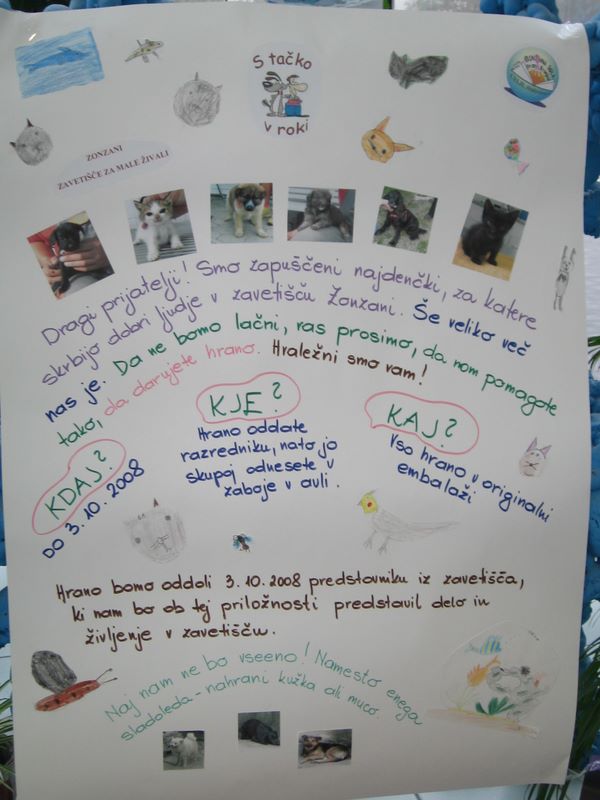 S tačko
v roki
ZONZANI
ZAVETIŠČE ZA MALE ŽIVALI
Dragi prijatelji! Smo zapuščeni najdenčki, za katere
skrbijo dobri ljudje v zavetišču Zonzani. Še veliko več
nas je. Da ne bomo lačni, vas prosimo, da nam pomagate
tako, da darujete hrano. Hvaležni smo vam!
KDAJ?
DO 3.10.2008
KJE?
Hrano oddate
razredniku, nato jo
skupaj odnesete v
zaboje v avli.
KAJ?
Vso hrano v originalni
embalaži
Hrano bomo oddali 3.10.2008 predstavniku iz zavetišča,
ki nam bo ob tej priložnosti predstavil delo in
življenje v zavetišču.
Naj nam ne bo vseeno! Namesto enega
sladoleda - nahrani kužka ali muco.